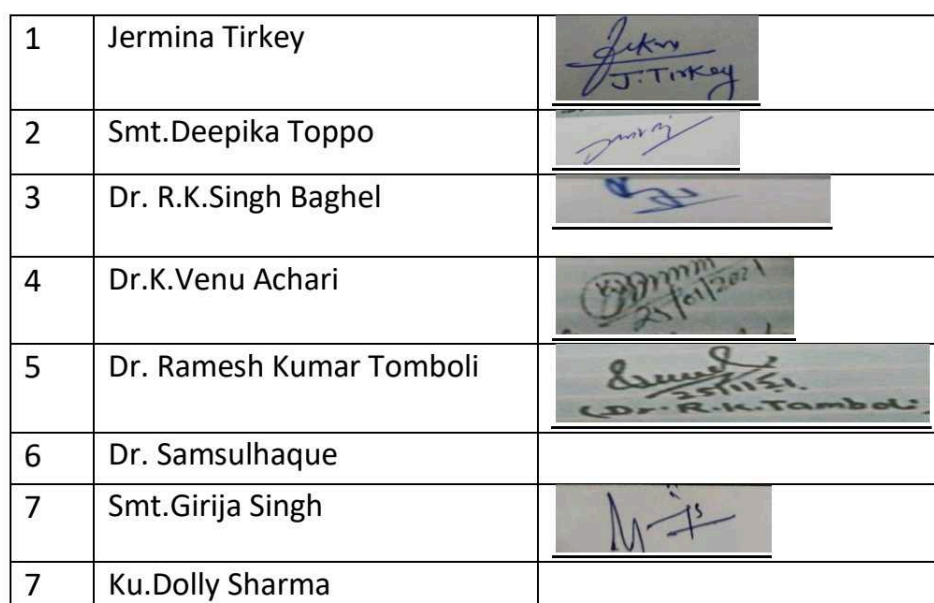 1 Jermina Tirkey
J. Tirkey
2 Smt.Deepika Toppo
3 Dr. R.K.Singh Baghel
4 Dr.K.Venu Achari
25/01/2021
5 Dr. Ramesh Kumar Tomboli
(Dr. R.K. Tamboli)
6 Dr. Samsulhaque
7 Smt.Girija Singh
7 Ku.Dolly Sharma